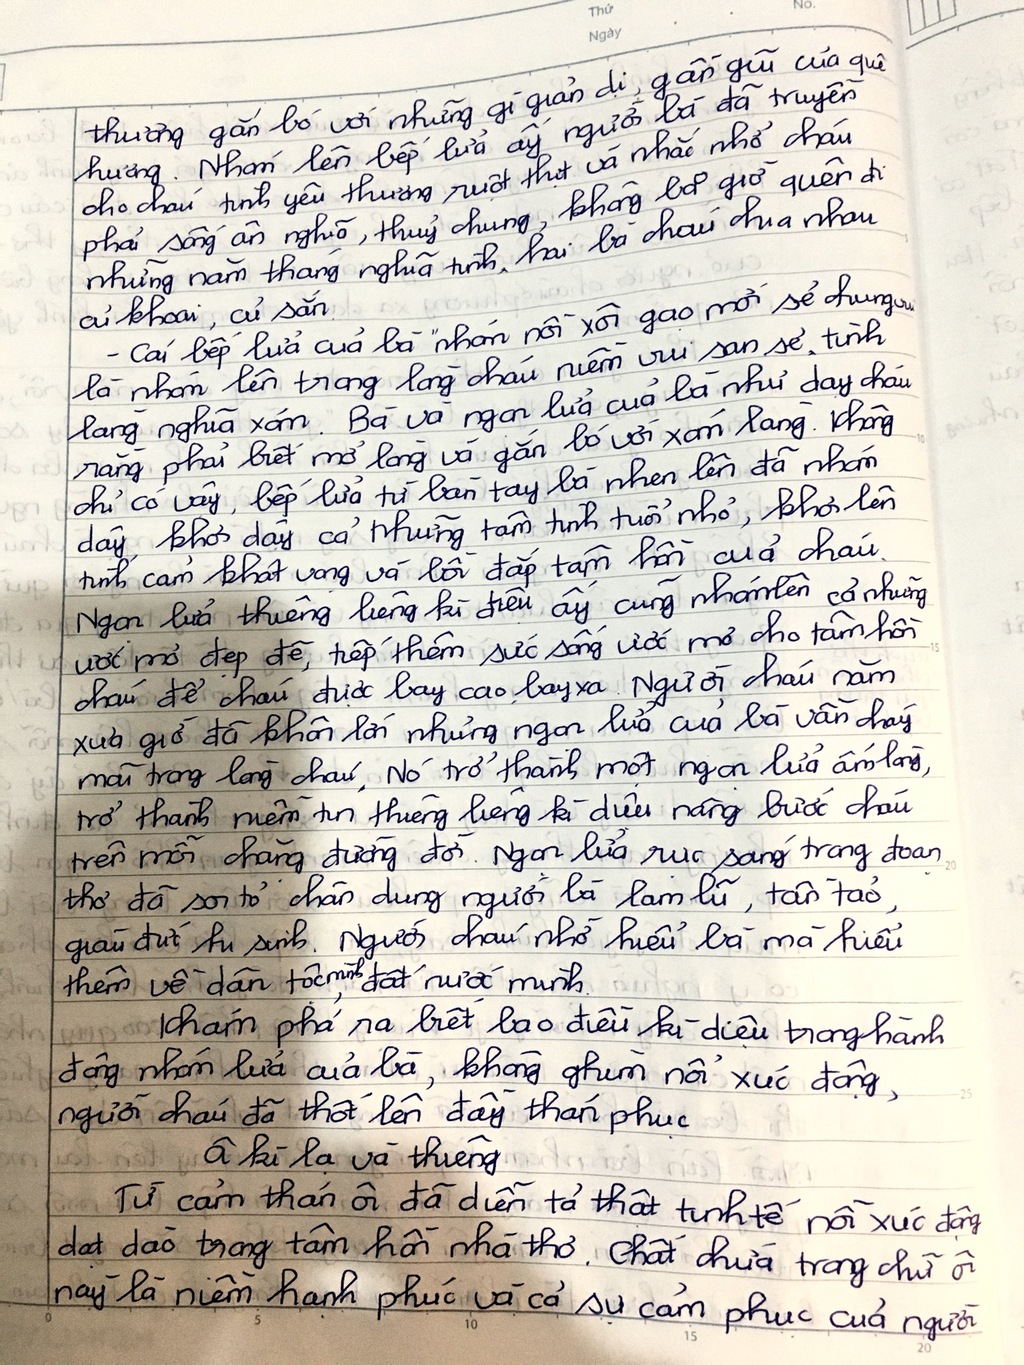 Thứ
No.
Ngày
thương gắn bó với những gì giản dị, gần gũi của quê
hương. Nhóm lên bếp lửa ấy người bà đã truyền
cho cháu tình yêu thương ruột thịt và nhắc nhở cháu
phải sống ân nghĩa, thuỷ chung, không bao giờ quên đi
những năm tháng nghĩa tình, hai bà cháu chia nhau
củ khoai, củ sắn.
- Cái bếp lửa của bà "nhóm nồi xôi gạo mới sẻ chung vui
là nhóm lên trong lòng cháu niềm vui san sẻ, tình
làng nghĩa xóm. Bà và ngọn lửa của bà như dạy cháu
rằng phải biết mở lòng và gắn bó với xóm làng. Không
chỉ có vậy, bếp lửa từ bàn tay bà nhen lên đã nhóm
dậy, khơi dậy cả những tâm tình tuổi nhỏ, khơi lên
tình cảm khát vọng và bồi đắp tâm hồn của cháu.
Ngọn lửa thiêng liêng kì diệu ấy cũng nhóm lên cả những
ước mơ đẹp đẽ, tiếp thêm sức sống ước mơ cho tâm hồn
cháu để cháu được bay cao, bay xa. Người cháu năm
xưa giờ đã khôn lớn nhưng ngọn lửa của bà vẫn cháy
mãi trong lòng cháu, Nó trở thành một ngọn lửa ấm lòng,
trở thành niềm tin thiêng liêng kì diệu nâng bước cháu
trên mỗi chặng đường đời. Ngọn lửa rực sáng trong đoạn
thơ đã soi tỏ chân dung người bà lam lũ, tần tảo,
giàu đức hi sinh. Người cháu nhớ hiểu bà mà hiểu
thêm về dân tộc mình, đất nước mình.
Khám phá ra biết bao điều kì diệu trong hành
động nhóm lửa của bà, không ghìm nổi xúc động,
người cháu đã thốt lên đầy thán phục
Ôi kì lạ và thiêng
Từ cảm thán ôi đã diễn tả thật tinh tế nỗi xúc động
dạt dào trong tâm hồn nhà thơ. Chất chứa trong chữ ôi
này là niềm hạnh phúc và cả sự cảm phục của người
0 5 10 15 20
10
15
20
25